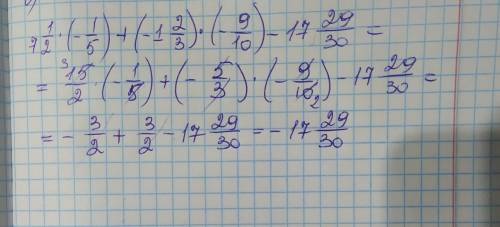 7 1/2 · (- 1/5) + (-1 2/3) · (- 9/10) - 17 29/30 =
= 15/2 3 · (- 1/5) + (- 5/3) · (- 9/10 2) - 17 29/30 =
= - 3/2 + 3/2 - 17 29/30 = - 17 29/30